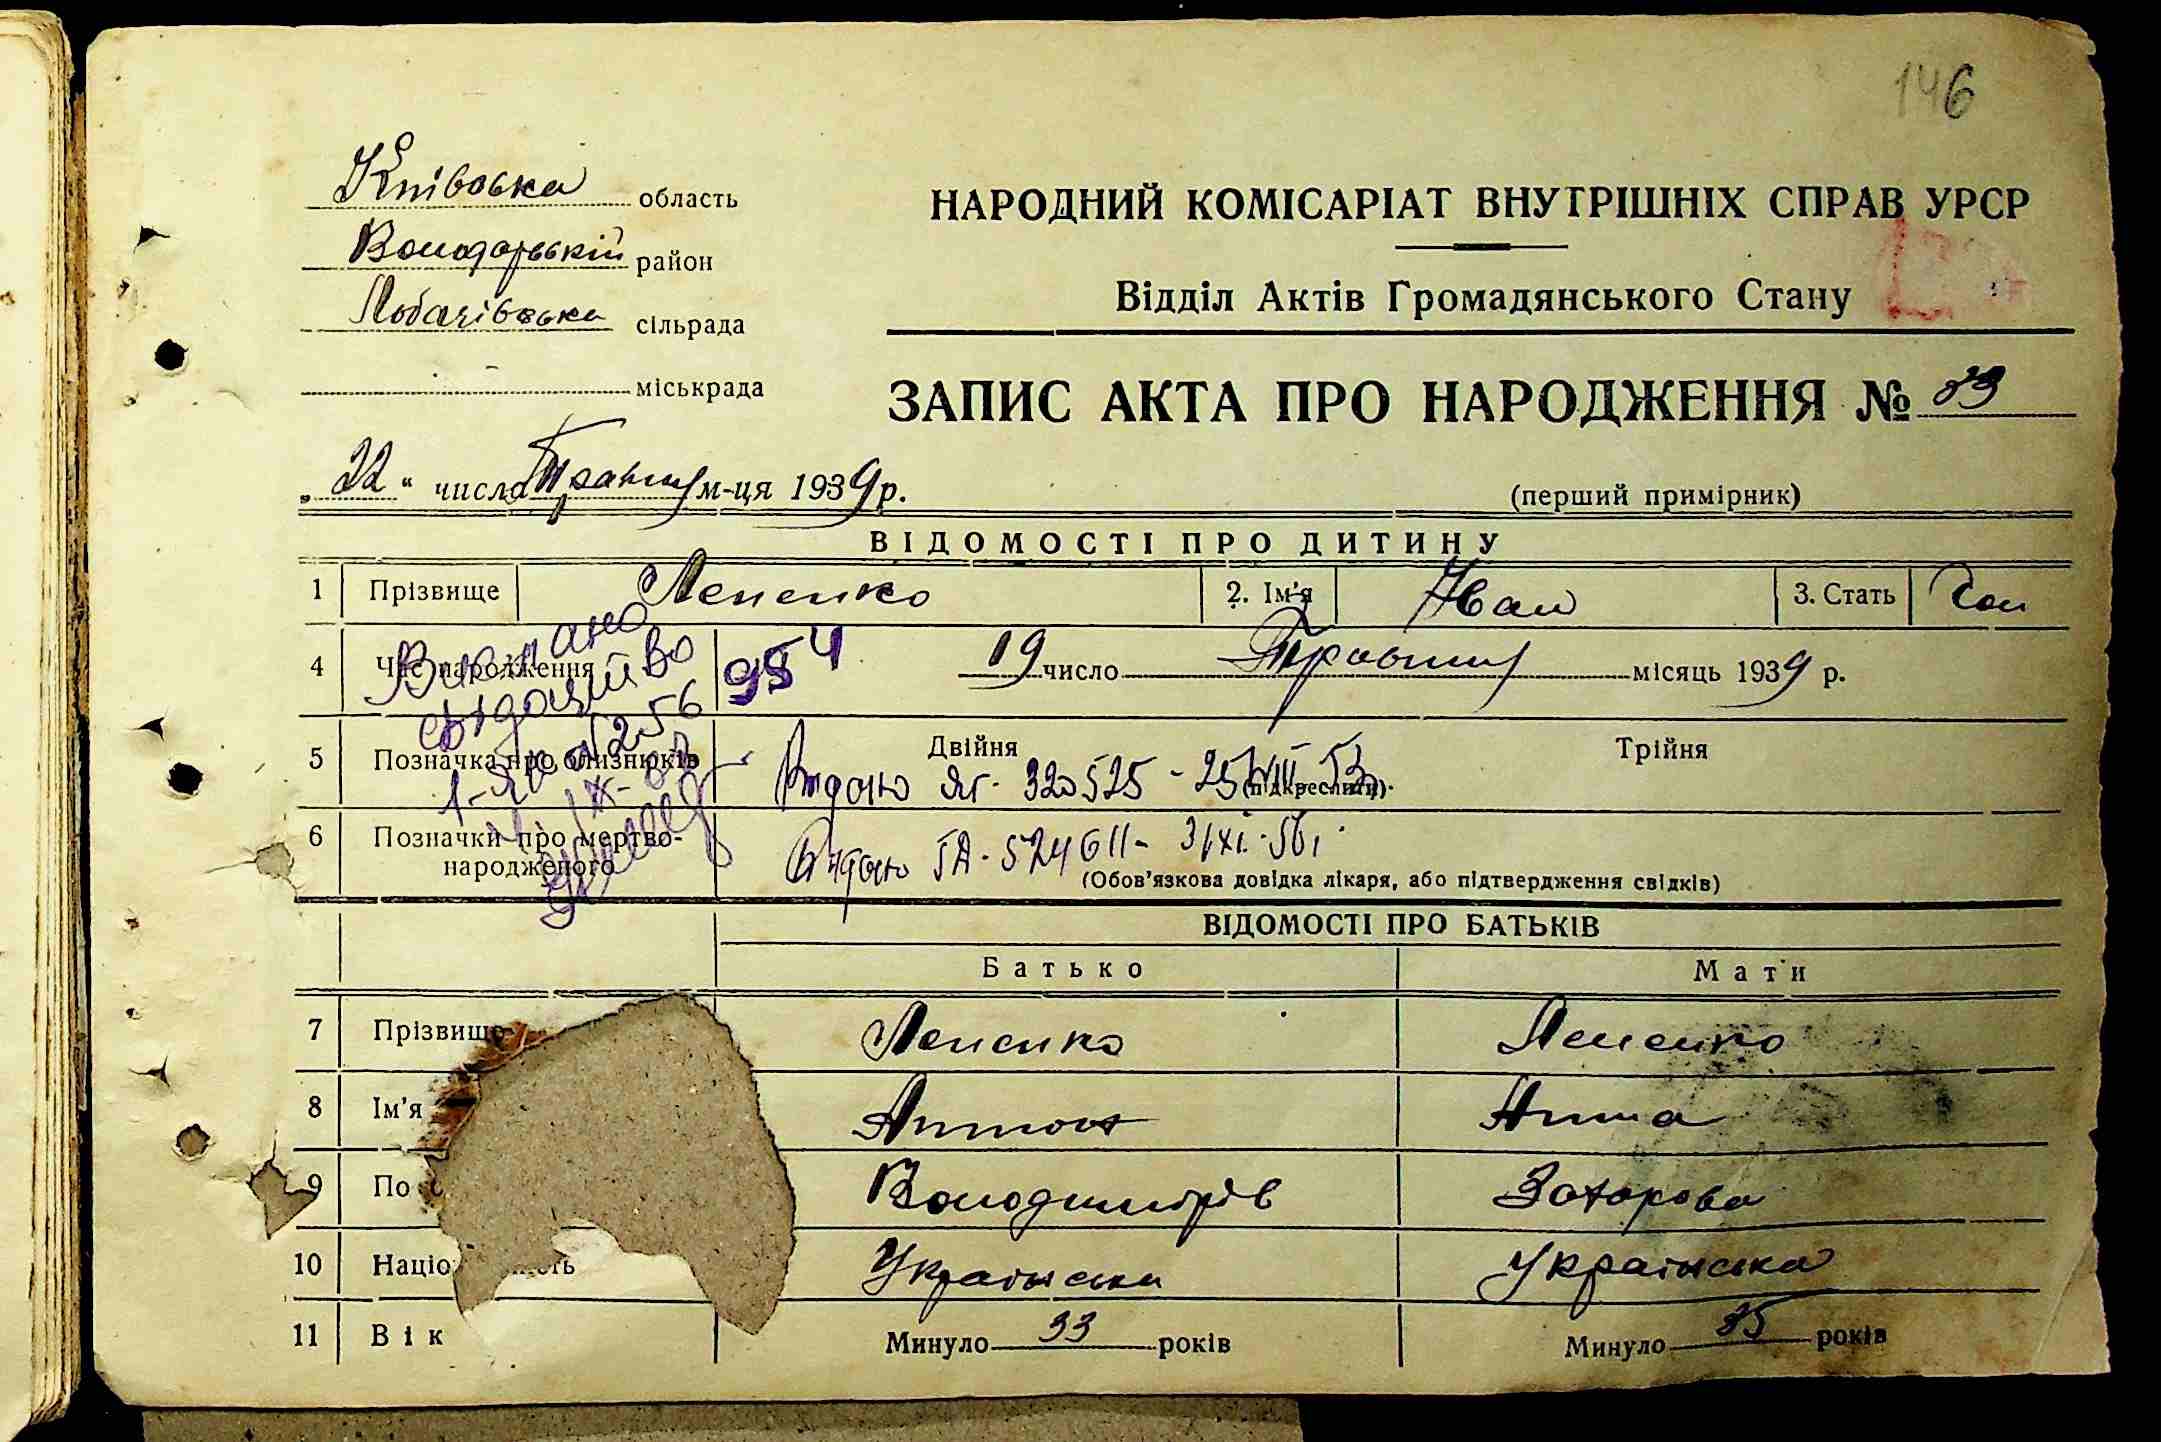 146
Київська область
Володарський район
Лобачівська сільрада
міськрада
НАРОДНИЙ КОМІСАРІАТ ВНУТРІШНІХ СПРАВ УРСР
Відділ Актів Громадянського Стану
ЗАПИС АКТА ПРО НАРОДЖЕННЯ №
„22“ числа Травня м-ця 1939 р.
(перший примірник)
ВІДОМОСТІ ПРО ДИТИНУ
1 Прізвище Лененко 2. Ім'я Іван 3. Стать Чол
4 Час народження 19 число Травня місяць 1939 р.
954
Видано свідоцтво
5 Позначка про близнюків Двійня Трійня
(підкреслити)
Видано ЯГ-320525-25/VIII-53
6 Позначки про мертво-
народженого
Видано ІА-524611- 3/XI-56
(Обов'язкова довідка лікаря, або підтвердження свідків)
ВІДОМОСТІ ПРО БАТЬКІВ
Батько Мати
7 Прізвище Лененко Лененко
8 Ім'я Антон Анна
9 По Володимирів Захарова
10 Націо ість Українська Українська
11 Вік Минуло 33 років Минуло 35 років